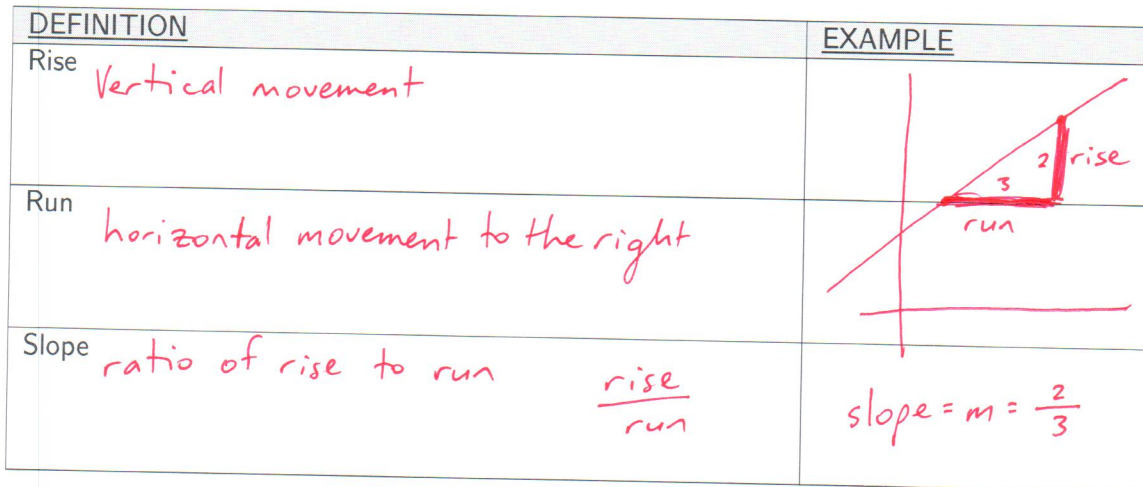 DEFINITION
EXAMPLE
Rise
Vertical movement
2 rise
3
run
Run
horizontal movement to the right
Slope
ratio of rise to run
rise
run
slope = m = 2/3